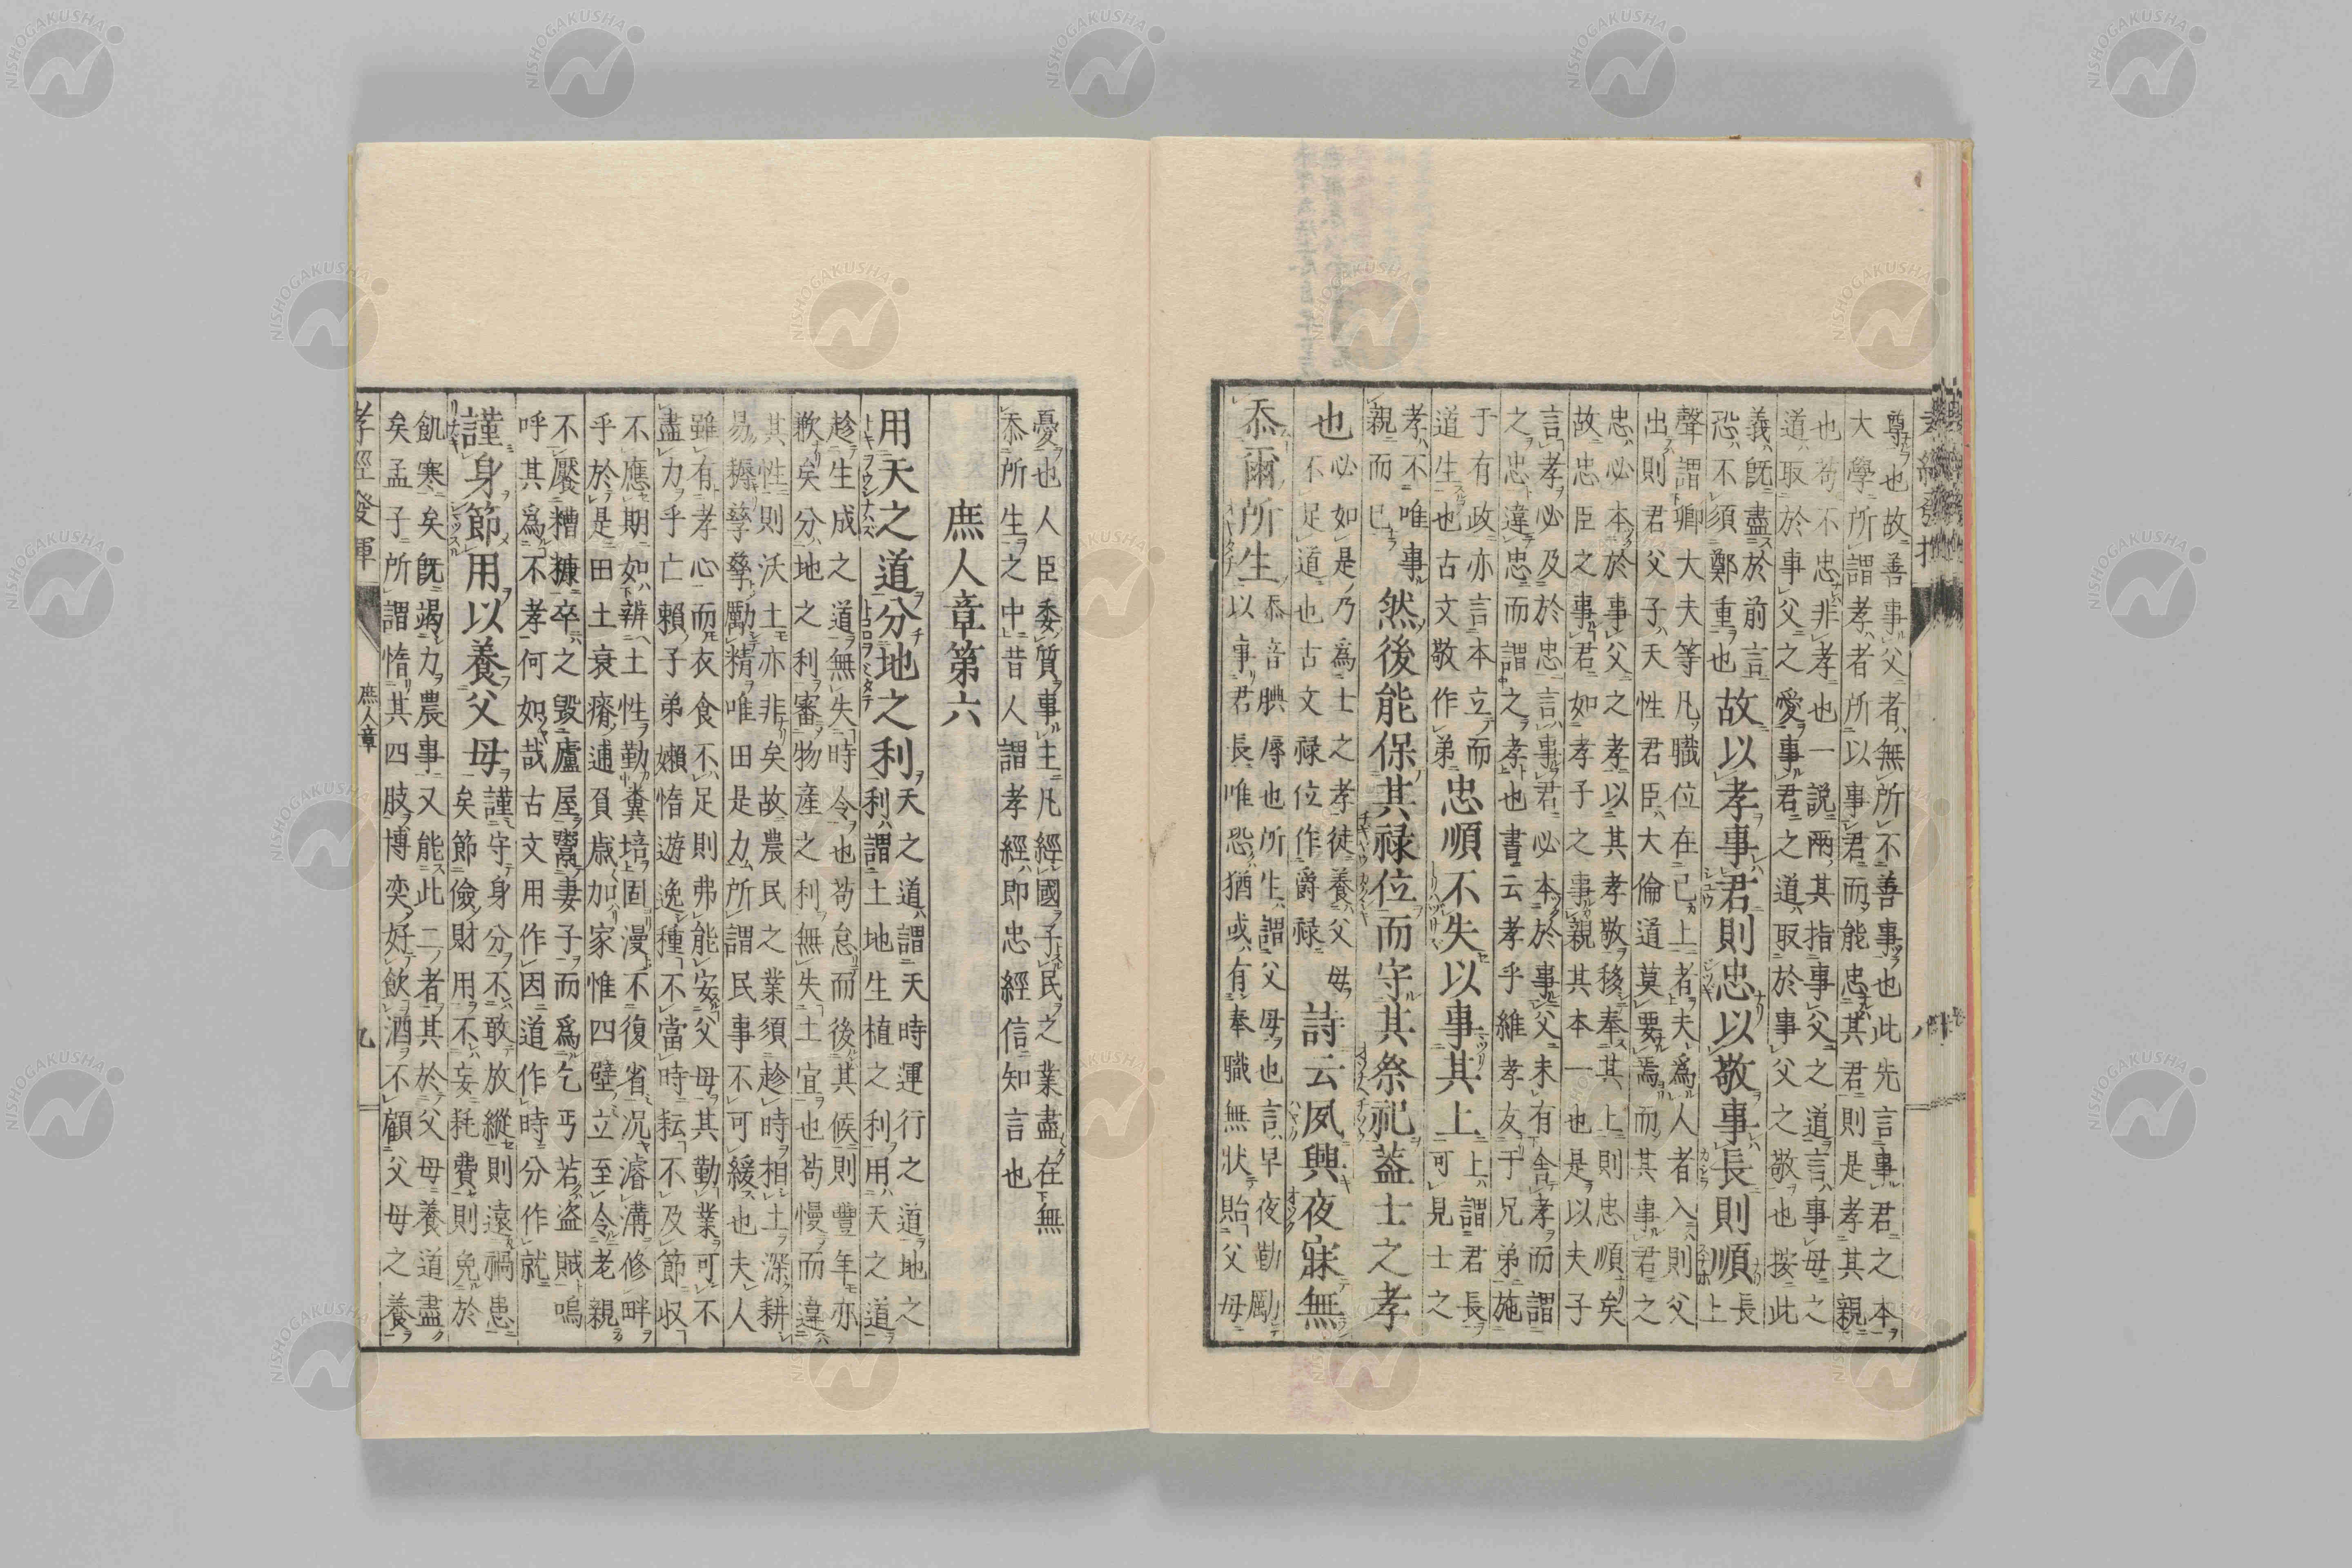 尊也故善事父者無所不善事也此先言事君之本
大學所謂孝者所以事君而能忠其君則是孝其親
也苟不忠非孝也一說兩其指事父之道言事母之
道取於事父之愛事君之道取於事父之敬也按此
義既盡於前言
恐不須鄭重也
故以孝事君則忠以敬事長則順
長
上
聲謂卿大夫等凡職位在己上者夫爲人者入則父
出則君父子天性君臣大倫道莫要焉而其事君之
忠必本於事父之孝以其孝敬移奉其上則忠順矣
故忠臣之事君如孝子之事親其本一也是以夫子
言孝必及於忠言事君必本於事父未有舍孝而謂
之忠違忠而謂之孝也書云孝乎維孝友于兄弟施
于有政亦言本立而
道生也古文敬作弟
忠順不失以事其上
上謂君長
可見士之
孝不唯事
親而已
然後能保其禄位而守其祭祀蓋士之孝
也
必如是乃爲士之孝徒養父母
不足道也古文禄位作爵禄
詩云夙興夜寐無
忝爾所生
忝音腆辱也所生謂父母也言早夜勤勵
以事君長唯恐猶或有奉職無狀貽父母
憂也人臣委質事主凡經國子民之業盡在無
忝所生之中昔人謂孝經即忠經信知言也
庶人章第六
用天之道分地之利
天之道謂天時運行之道地之
利謂土地生植之利用天之道
趁生成之道無失時令也苟怠而後其候則豐年亦
歉矣分地之利審物産之利無失土宜也苟慢而違
其性則沃土亦非矣故農民之業須趁時相土深耕
易耨孳孳勵精唯田是力所謂民事不可緩也夫人
雖有孝心而衣食不足則弗能安父母其勤業可不
盡力乎亡賴子弟嬾惰遊逸種不當時耘不及節収
不應期如辨土性勤糞培固漫不復省况濬溝修畔
乎於是田土衰瘠逋負歳加家惟四壁立至令老親
不饜糟糠卒之毀廬屋鬻妻子而爲乞丐若盗賊嗚
呼其爲不孝何如哉古文用作因道作時分作就
謹身節用以養父母
謹守身分不敢放縱則遠禍患
矣節儉財用不妄耗費則免於
飢寒矣既竭力農事又能此二者其於父母養道盡
矣孟子所謂惰其四肢博奕好飲酒不顧父母之養
孝經發揮
庶人章
九
NISHOGAKUSHA